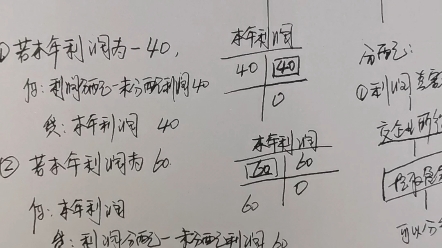 ① 若本年利润为-40,
借:利润分配—未分配利润 40
贷:本年利润 40
② 若本年利润为 60.
借:本年利润 60
贷:利润分配—未分配利润 60
本年利润
40 40
0
本年利润
60 60
0
分配:
①利润
可以